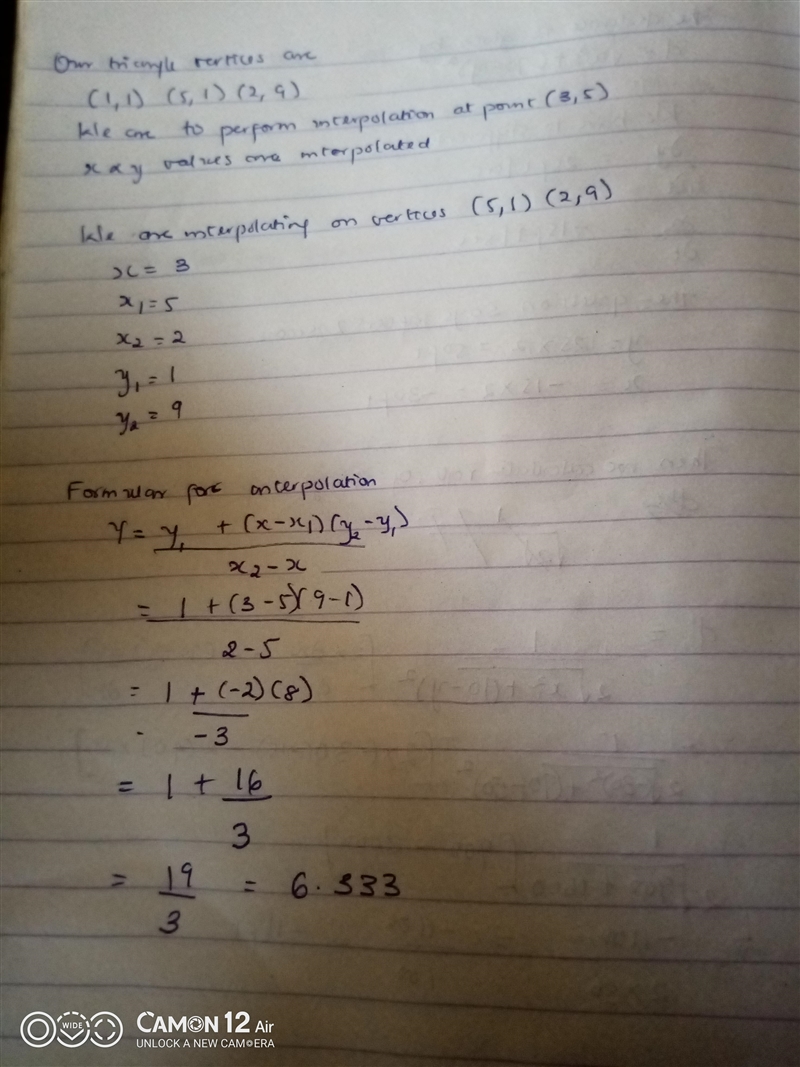 Our triangle vertices are
(1,1) (5,1) (2,9)
We are to perform interpolation at point (3,5)
x & y values are interpolated
We are interpolating on vertices (5,1) (2,9)
x = 3
x₁ = 5
x₂ = 2
y₁ = 1
y₂ = 9
Formular for interpolation
Y = y₁ + (x-x₁)(y₂-y₁)
x₂-x
= 1 + (3-5)(9-1)
2-5
= 1 + (-2)(8)
-3
= 1 + 16
3
= 19 = 6.333
3
WIDE
CAMON 12 Air
UNLOCK A NEW CAMERA